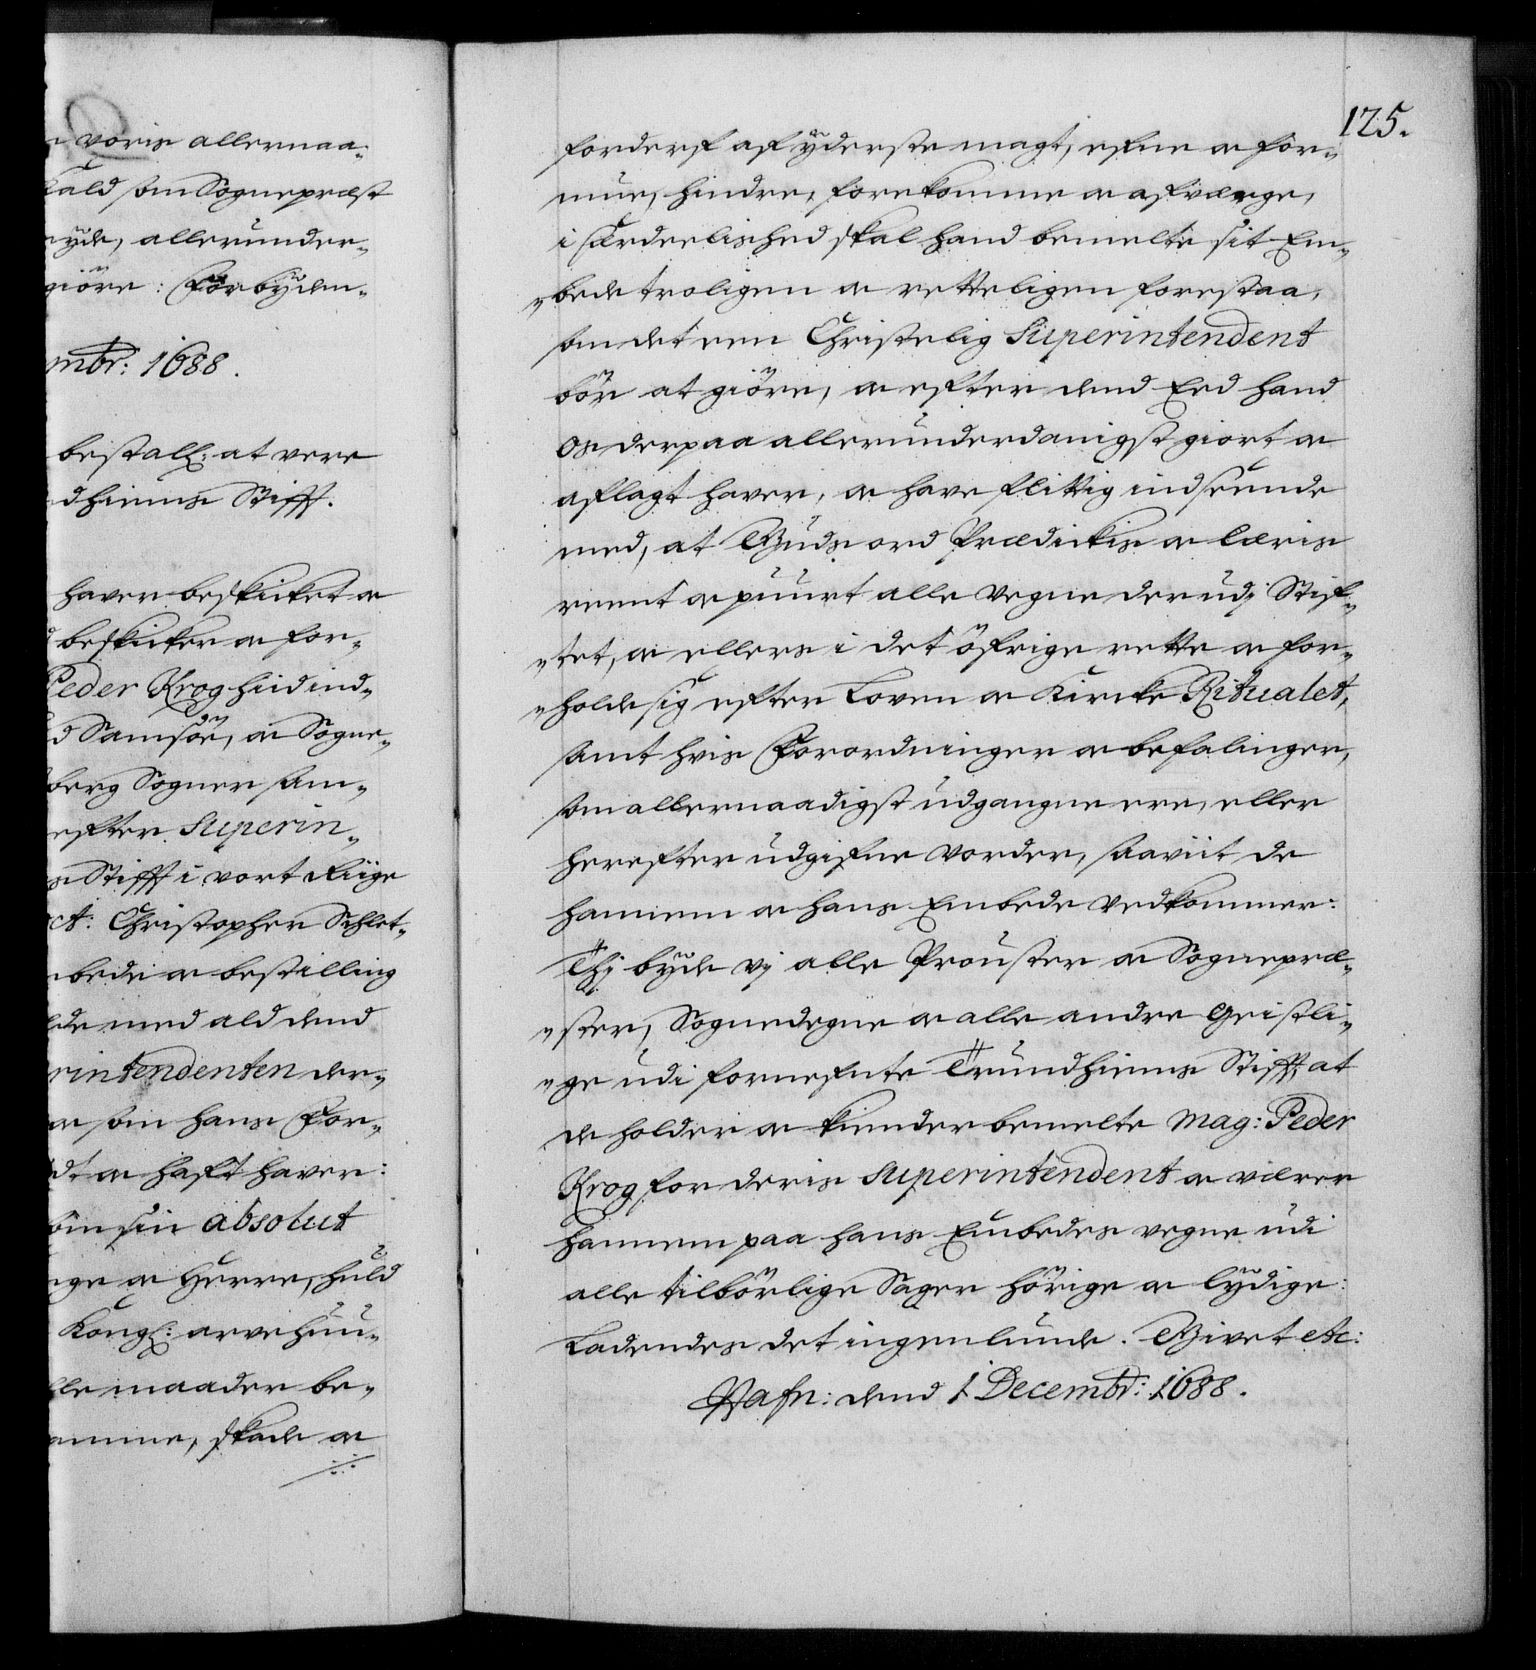 voris allernaa-
Kald som Sognepræst
nyde, allerunder-
giöre: Forbyden-
mbr: 1688.
bestall: at vere
dhiems Stifft.
haver beskicket oc
beskicker oc for-
Peder Krog hiid ind-
d Samsöe, oc Sogne-
berg Sogner sam-
efter Superin-
s Stifft i vort Riige
ct: Christopher Schlet-
bede oc bestilling
de med ald dend
rintendenten der-
oc som hans For-
dt oc hafft haver:
som sin absolut
nge oc Herre, huld
Kongl: arvehuu-
lle maader be-
amme, skade oc
125.
forderf af yderste magt, efne oc for-
mue, hindre, forekomme oc afværge,
i særdeelished skal hand bemelte sit Em-
bede troligen oc retteligen forestaa,
som det een Christelig Superintendent
bör at giöre, oc efter dend Eed hand
os derpaa allerunderdanigst giort oc
aflagt haver, oc have flittig indseende
med, at Guds ord Prædickis oc læris
reent oc puurt alle vegne der udj Stif-
tet, oc ellers i det öfrige rette oc for-
holde sig efter Loven oc Kircke Ritualet,
samt hvis Forordninger oc befalinger,
som allernaadigst udgangne ere, eller
herefter udgifne vorder, saaviit de
hannem oc hans Embede vedkommer:
Thj byde vj alle Prouster oc Sognepræ-
ster, Sognedegne oc alle andre Geistli-
ge udi fornefnte Trundhiems Stifft, at
de holder oc kiender bemelte Mag: Peder
Krog for deris Superintendent oc værer
hannem paa hans Embedes vegne udi
alle tilbörlige Sager hörige oc lydige:
Ladendes det ingenlunde. Givet etc:
Hafn: dend 1 Decembr: 1688.